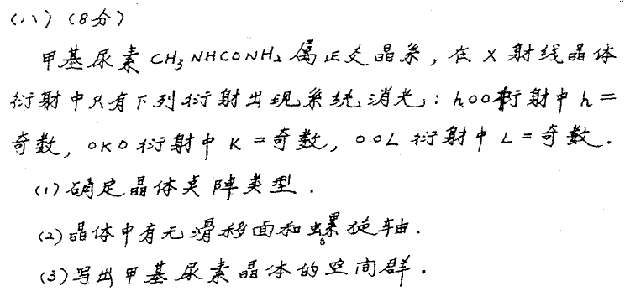 (八) (8分)
甲基尿素 CH₃NHCONH₂ 属正交晶系, 在 X 射线晶体
衍射中只有下列衍射出现系统消光: h00衍射中 h =
奇数, 0K0 衍射中 K = 奇数, 00L 衍射中 L = 奇数.
(1) 确定晶体点阵类型.
(2) 晶体中有无滑移面和螺旋轴.
(3) 写出甲基尿素晶体的空间群.